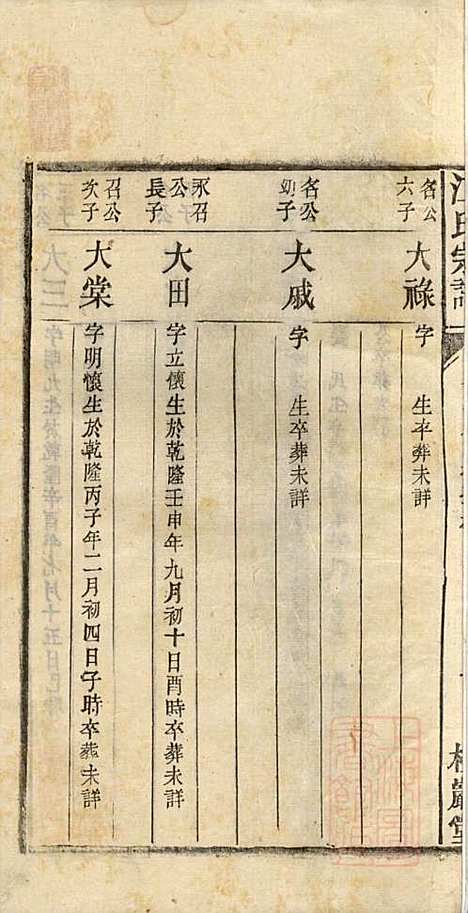 名公六子
大祿
字 生卒葬未詳
名公幼子
大戚
字 生卒葬未詳
永召公長子
大田
字立懷生於乾隆壬申年九月初十日酉時卒葬未詳
召公次子
大棠
字明懷生於乾隆丙子年二月初四日子時卒葬未詳